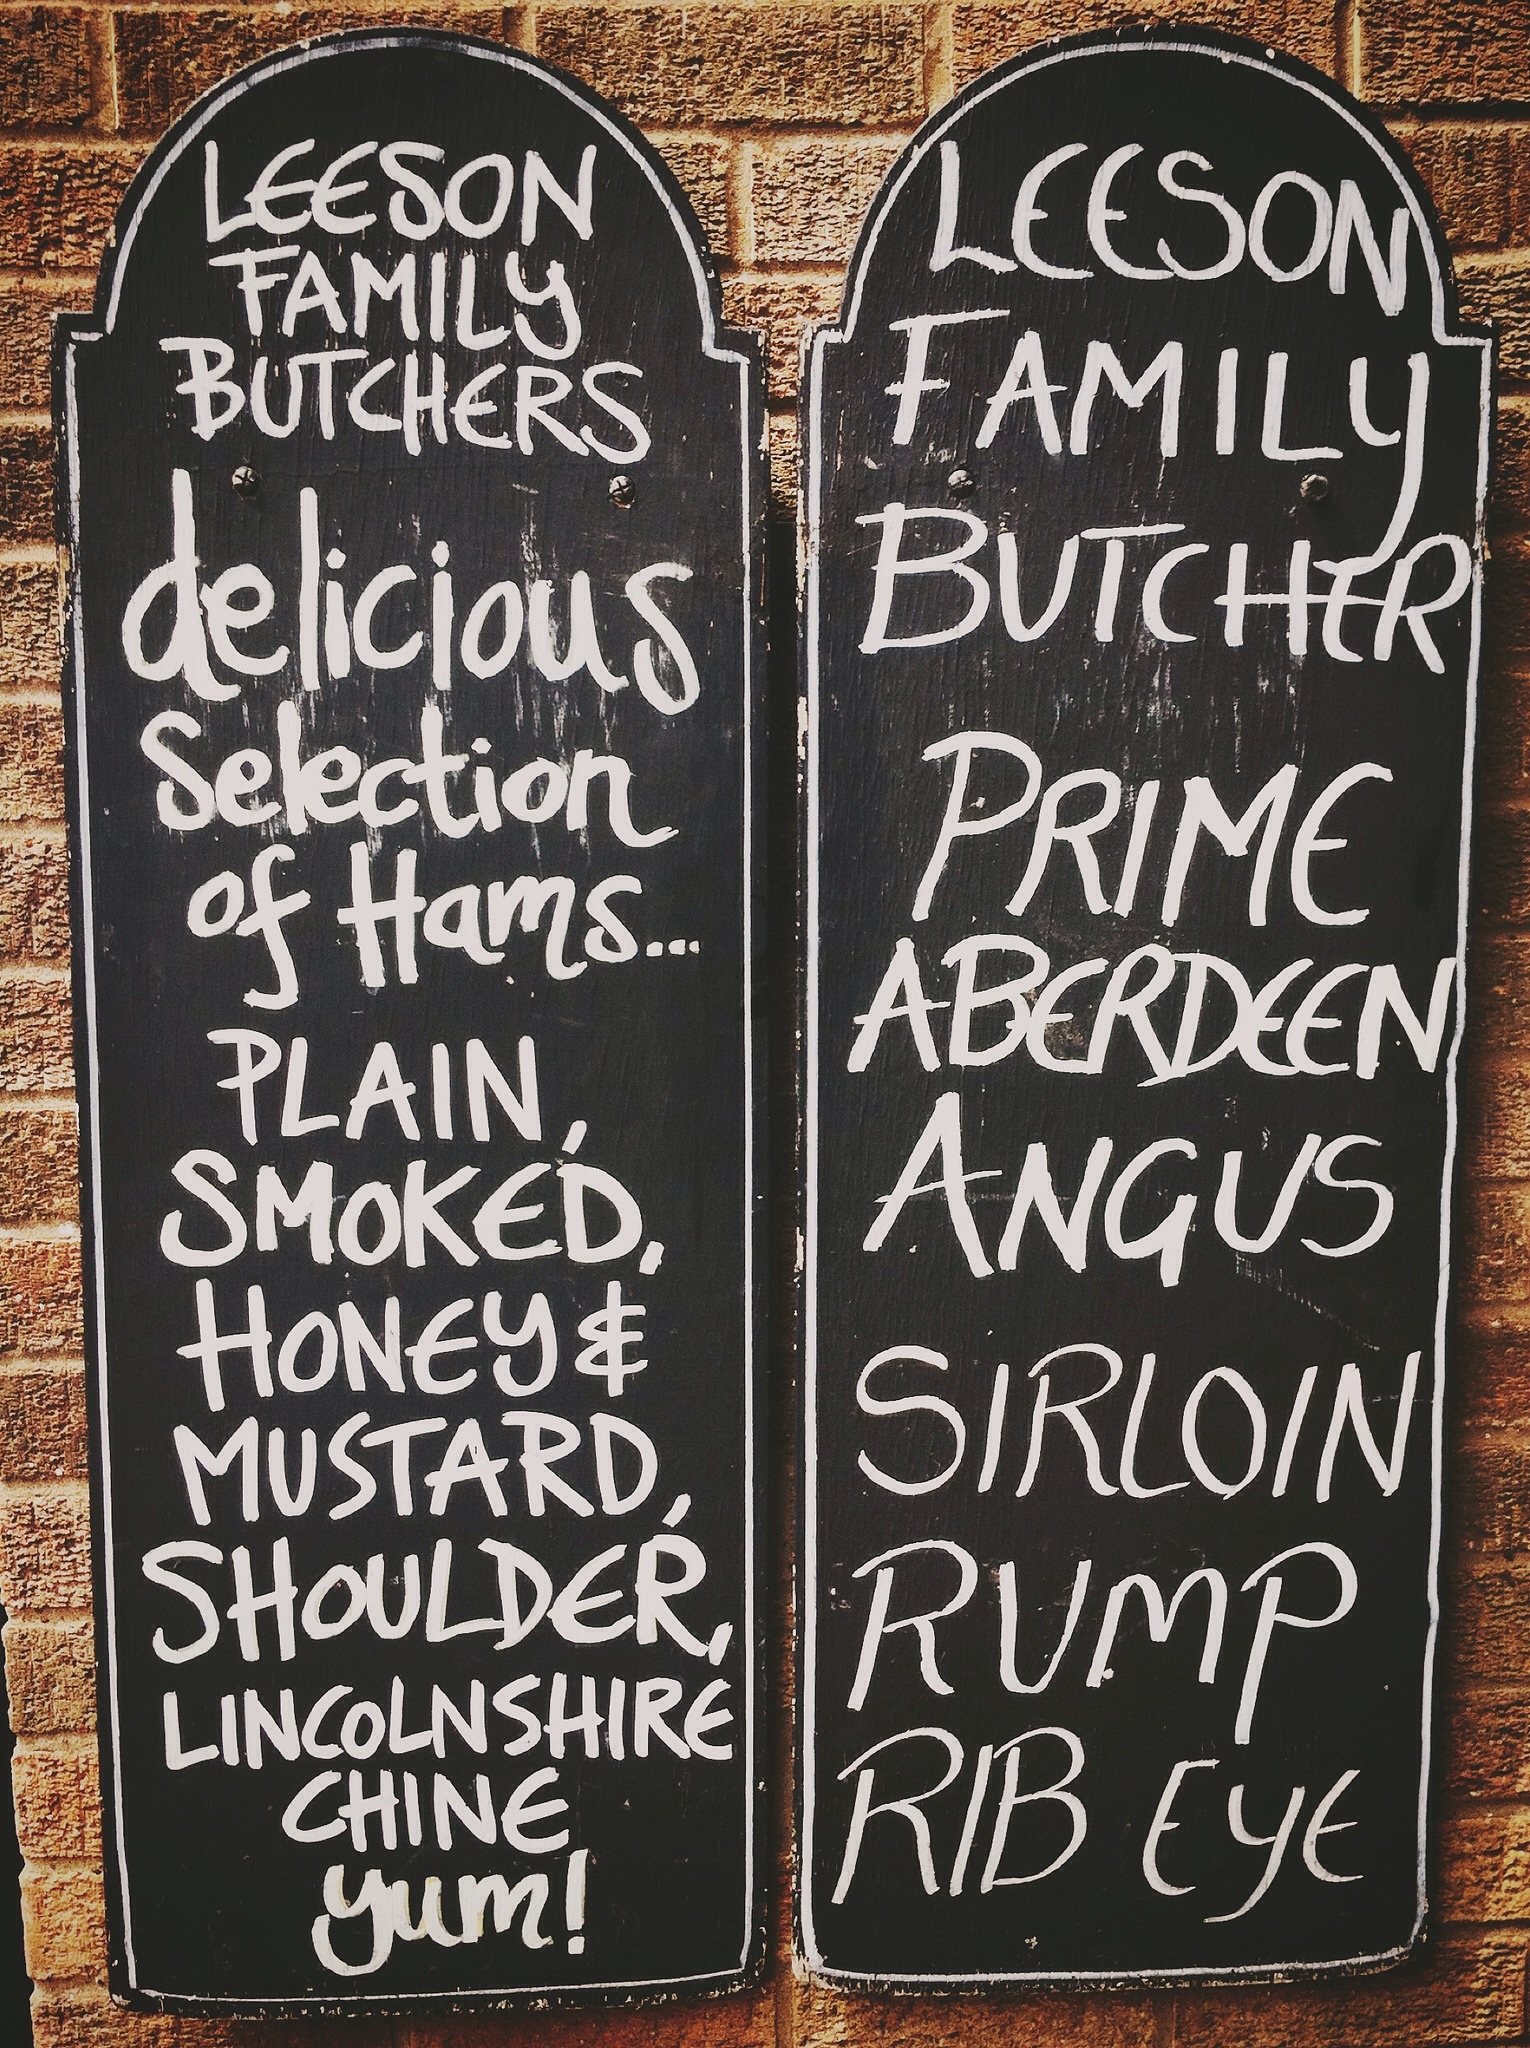 LEESON
FAMILY
BUTCHERS
delicious
Selection
of Hams...
PLAIN,
SMOKED,
HONEY &
MUSTARD,
SHOULDER,
LINCOLNSHIRE
CHINE
yum!
LEESON
FAMILY
BUTCHER
PRIME
ABERDEEN
ANGUS
SIRLOIN
RUMP
RIB EYE